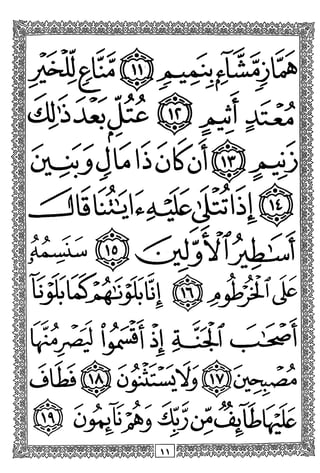 هَمَّازٍ مَّشَّآءِۭ بِنَمِيمٍ ١١ مَّنَّاعٍ لِّلْخَيْرِ
مُعْتَدٍ أَثِيمٍ ١٢ عُتُلِّۭ بَعْدَ ذَٰلِكَ
زَنِيمٍ ١٣ أَن كَانَ ذَا مَالٍ وَبَنِينَ
١٤ إِذَا تُتْلَىٰ عَلَيْهِ ءَايَٰتُنَا قَالَ
أَسَٰطِيرُ ٱلْأَوَّلِينَ ١٥ سَنَسِمُهُۥ
عَلَى ٱلْخُرْطُومِ ١٦ إِنَّا بَلَوْنَٰهُمْ كَمَا بَلَوْنَآ
أَصْحَٰبَ ٱلْجَنَّةِ إِذْ أَقْسَمُوا۟ لَيَصْرِمُنَّهَا
مُصْبِحِينَ ١٧ وَلَا يَسْتَثْنُونَ ١٨ فَطَافَ
عَلَيْهَا طَآئِفٌ مِّن رَّبِّكَ وَهُمْ نَآئِمُونَ ١٩
١١